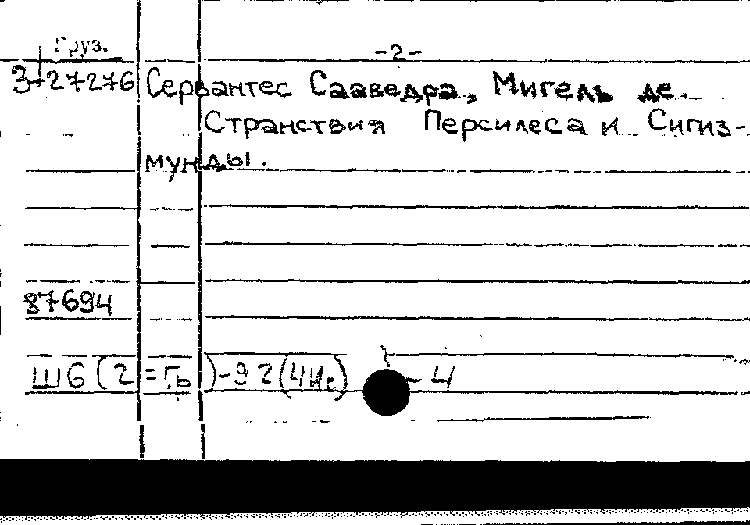 Груз.
-2-
3-27276 Сервантес Сааведра, Мигель де.
Странствия Персилеса и Сигиз-
мунды.
87694
Ш6(2=Гр)-92(4Ис) - 4